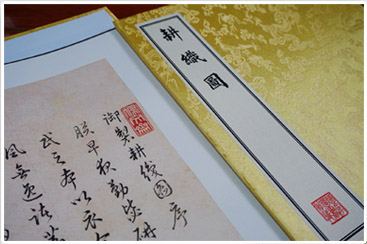 耕織圖
御製耕織圖序
朕早夜勤毖研
民之本以衣
風無逸諸